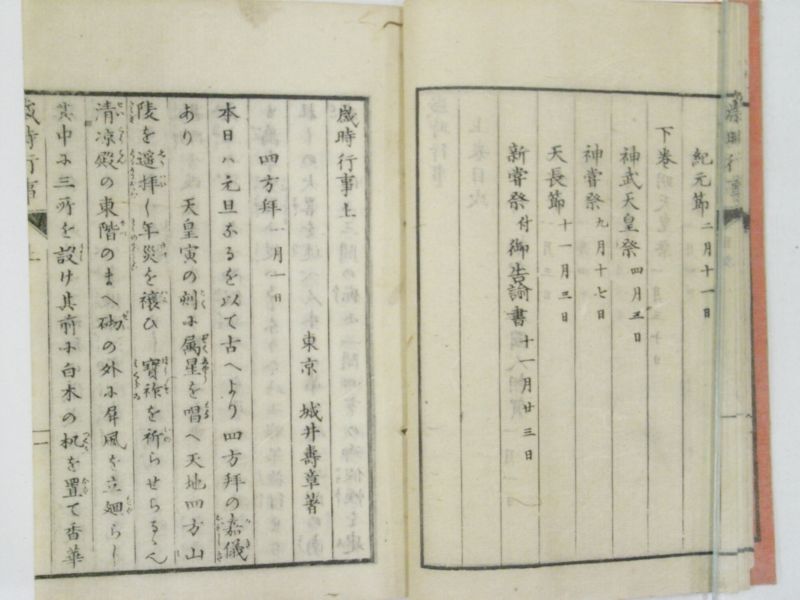 紀元節 二月十一日
下巻
神武天皇祭 四月三日
神嘗祭 九月十七日
天長節 十一月三日
新嘗祭 付御告諭書 十一月廿三日
歳時行事上
東京 城井壽章著
四方拜 一月一日
本日ハ元旦なるを以て古へより四方拜の嘉儀
あり 天皇寅の刻に属星を唱へ天地四方山
陵を遥拜し年災を禳ひ寶祚を祈らせらる
清凉殿の東階のまへ砌の外に屏風を立廻らし
其中に三所を設け其前に白木の机を置て香華
歳時行事 上